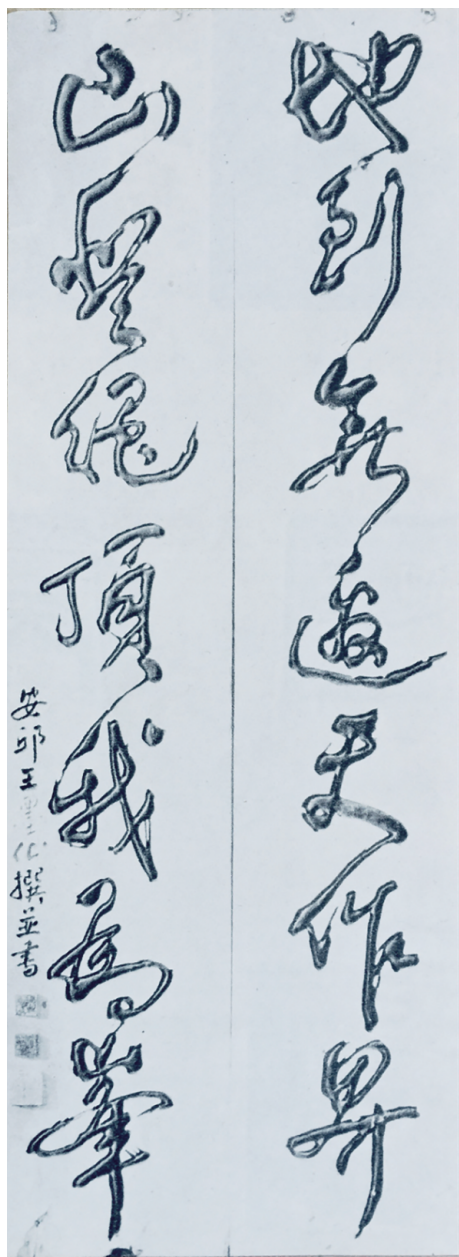 地到無邊天作界
山登絕頂我為峯
安邱王撰並書